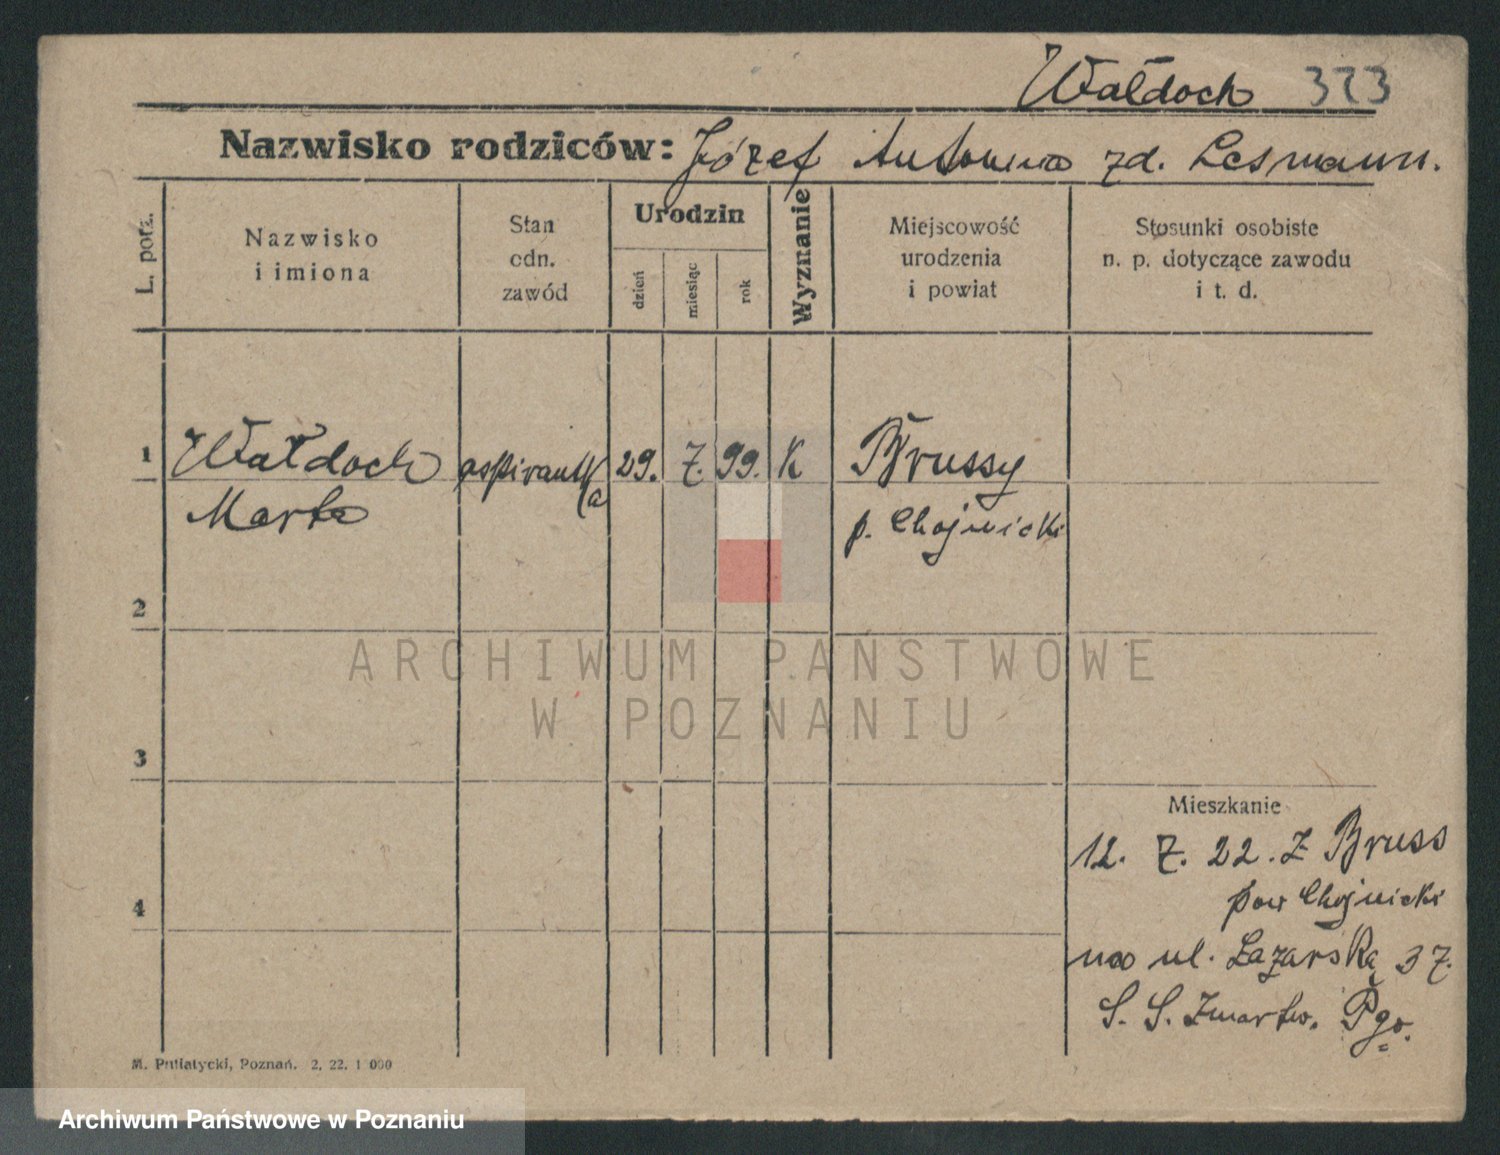 Wałdoch 373
Nazwisko rodziców: Józef Antonina zd. Lesmann.
L. porz.
Nazwisko
i imiona
Stan
odn.
zawód
Urodzin
dzień
miesiąc
rok
Wyznanie
Miejscowość
urodzenia
i powiat
Stosunki osobiste
n. p. dotyczące zawodu
i t. d.
1 Wałdoch aspirantka 29. 7. 99. K Brussy
Marta p. Chojnicki
2
ARCHIWUM PAŃSTWOWE
W POZNANIU
3
Mieszkanie
12. 7. 22. Z Bruss
pow Chojnicki
4
na ul. Łazarską 37.
S. S. Zmartw. Pgo.
M. Putiatycki, Poznań. 2. 22. 1 000
Archiwum Państwowe w Poznaniu